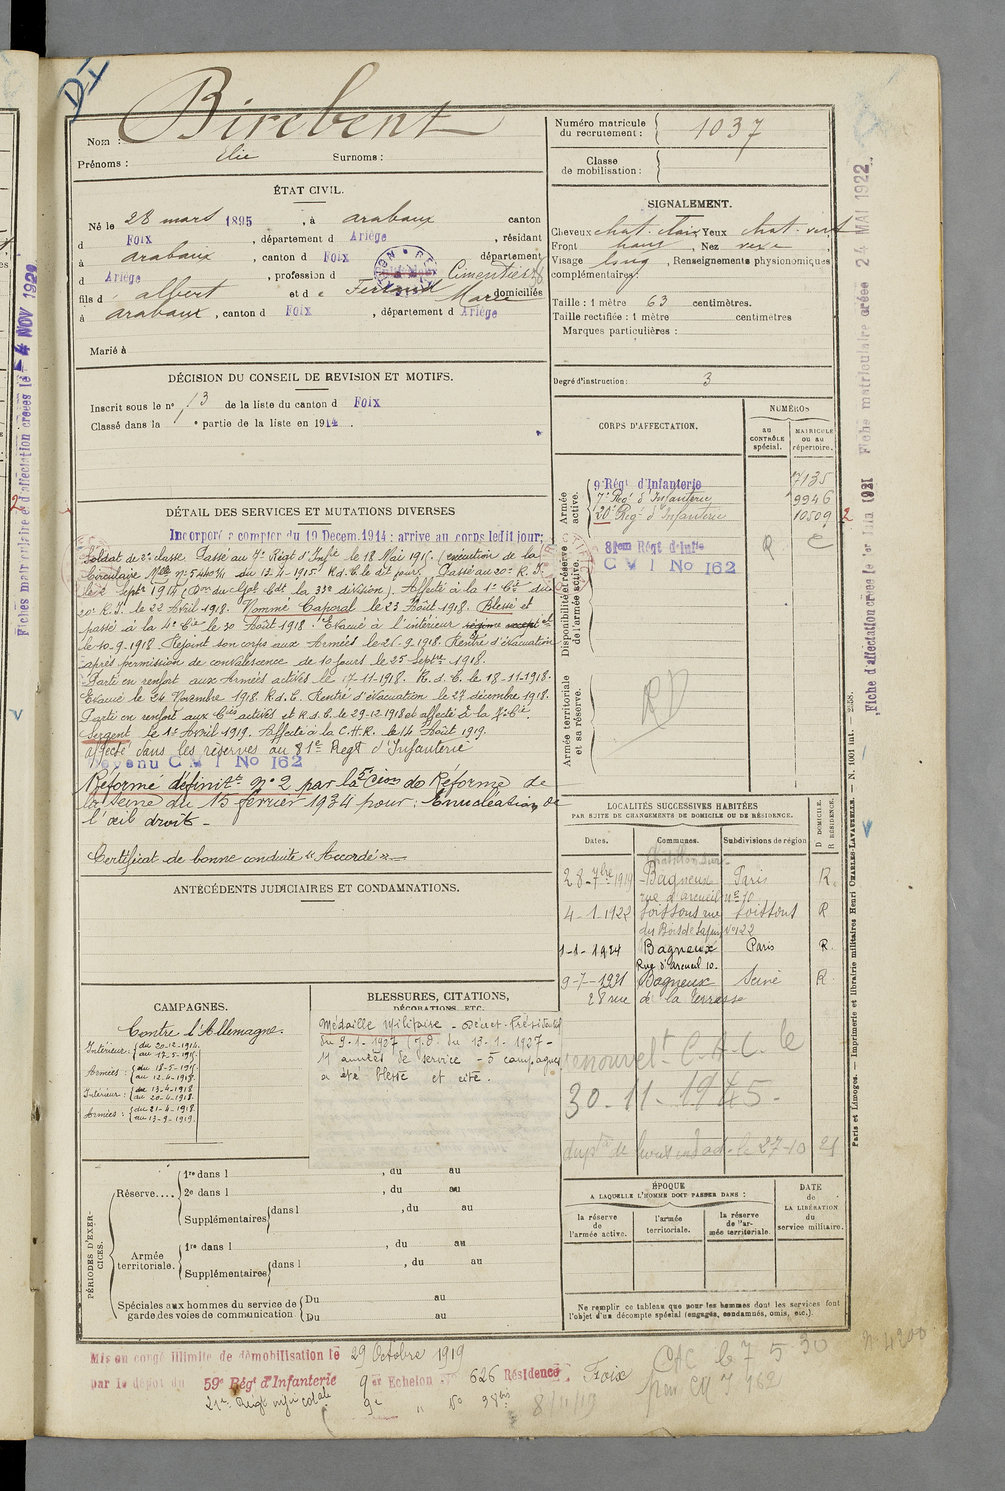 DI
Nom : Birebent
Prénoms : Elie Surnoms :
Numéro matricule
du recrutement : 1037
Classe
de mobilisation :
ÉTAT CIVIL.
Né le 28 mars 1895, à arabaux canton
d Foix, département d Ariège, résidant
à arabaux, canton d Foix département
d Ariège, profession d Cimentier
fils d' albert et de Ferrand Marie domiciliés
à arabaux, canton d Foix, département d Ariège
Marié à
SIGNALEMENT.
Cheveux chat. clair Yeux chat. vert
Front haut, Nez vexe
Visage long, Renseignements physionomiques
complémentaires :
Taille : 1 mètre 63 centimètres.
Taille rectifiée : 1 mètre centimètres
Marques particulières :
Degré d'instruction : 3
DÉCISION DU CONSEIL DE REVISION ET MOTIFS.
Inscrit sous le n° 13 de la liste du canton d Foix
Classé dans la 1e partie de la liste en 1914.
CORPS D'AFFECTATION.
NUMÉROS
au
CONTRÔLE
spécial.
MATRICULE
ou au
répertoire.
Armée
active.
9e Régt d'Infanterie 7135
7e Régt d'Infanterie 9946
20e Régt d'Infanterie 10509 2
Disponibilité et réserve
de l'armée active.
81eme Régt d'Infie
C M I No 162
Armée territoriale
et sa réserve.
RD
DÉTAIL DES SERVICES ET MUTATIONS DIVERSES
Incorporé à compter du 19 Decem. 1914 : arrivé au corps ledit jour;
Soldat de 2e classe. Passé au 7e Régt d'Infie le 18 Mai 1915. (exécution de la
Circulaire Mlle n° 5440 3/1 du 13-4-1915. R.d.C. le dit jour. Passé au 20e R.I.
le 2 Septre 1917 (Don du Gal Cdt la 33e division). Affecté à la 1e Cie du
20e R.I. le 22 Avril 1918. Nommé Caporal le 23 Août 1918. Blessé et
passé à la 4e Cie le 30 Août 1918. Evacué à l'intérieur
le 10-9-1918. Rejoint son corps aux Armées le 25-9-1918. Rentré d'évacuation
après permission de convalescence de 10 jours le 25 Septre 1918.
Parti en renfort aux Armées actives le 17-11-1918. R.d.C. le 18-11-1918.
Evacué le 24 Novembre 1918. R.d.C. Rentré d'évacuation le 27 décembre 1918.
Parti en renfort aux Cies actives et R.d.C. le 29-12-1918 et affecté à la
Sergent le 1e Avril 1919. Affecté à la C.H.R. le 14 Août 1919.
affecté dans les réserves au 81e Regt d'Infanterie
devenu C M I No 162
Réformé définitt n° 2 par la 5e Cion de Réforme de
la Seine du 15 février 1934 pour : Enucléation de
l'œil droit -
Certificat de bonne conduite "Accordé"
ANTÉCÉDENTS JUDICIAIRES ET CONDAMNATIONS.
LOCALITÉS SUCCESSIVES HABITÉES
PAR SUITE DE CHANGEMENTS DE DOMICILE OU DE RÉSIDENCE.
Dates. Communes. Subdivisions de région D DOMICILE. R RÉSIDENCE.
28-7bre 1919 Bagneux Paris R.
rue d'arcueil n° 10
4-1-1922 Soissons rue Soissons R
n° 122
1-1-1924 Bagneux Paris R.
Rue d'Arcueil 10.
9-7-1921 Bagneux Seine R.
28 rue de la terrasse
renouvelt C.A.C. le
30-11-1945.
CAMPAGNES.
Contre l'Allemagne.
Intérieur : du 20-12-1914.
au 17-5-1915.
Armées : du 18-5-1915.
au 12-4-1918.
Intérieur : du 13-4-1918
au 20-4-1918.
Armées : du 21-4-1918.
au 13-9-1919.
BLESSURES, CITATIONS,
DÉCORATIONS, ETC.
Médaille Militaire - Décret Présidentiel
du 9-1-1927 (J.O. du 13-1-1927 -
11 années de service - 5 campagnes
a été blessé et cité.
PÉRIODES D'EXERCICES.
Réserve.... 1re dans l , du au
2e dans l , du au
Supplémentaires dans l , du au
Armée
territoriale. 1re dans l , du au
Supplémentaires dans l , du au
Spéciales aux hommes du service de
garde des voies de communication Du au
Du au
ÉPOQUE
A LAQUELLE L'HOMME DOIT PASSER DANS :
la réserve
de
l'armée active.
l'armée
territoriale.
la réserve
de l'armée territoriale.
DATE
de
LA LIBÉRATION
du
service militaire.
Ne remplir ce tableau que pour les hommes dont les services font
l'objet d'un décompte spécial (engagés, condamnés, omis, etc.).
Mis en congé illimité de démobilisation le 29 Octobre 1919
par le dépôt du 59e Régt d'Infanterie 9e Echelon N° 626 Résidence : Foix
8/11/19
CAC le 7 5-30
Fiche matriculaire créée 24 MAI 1922
Fiche d'affectation créée le 1er Juin 1921
Paris et Limoges. — Imprimerie et librairie militaires Henri CHARLES-LAVAUZELLE. — N. 1001 int. — 2558.
Fiches matriculaire et d'affectation créées le 4 NOV 1929